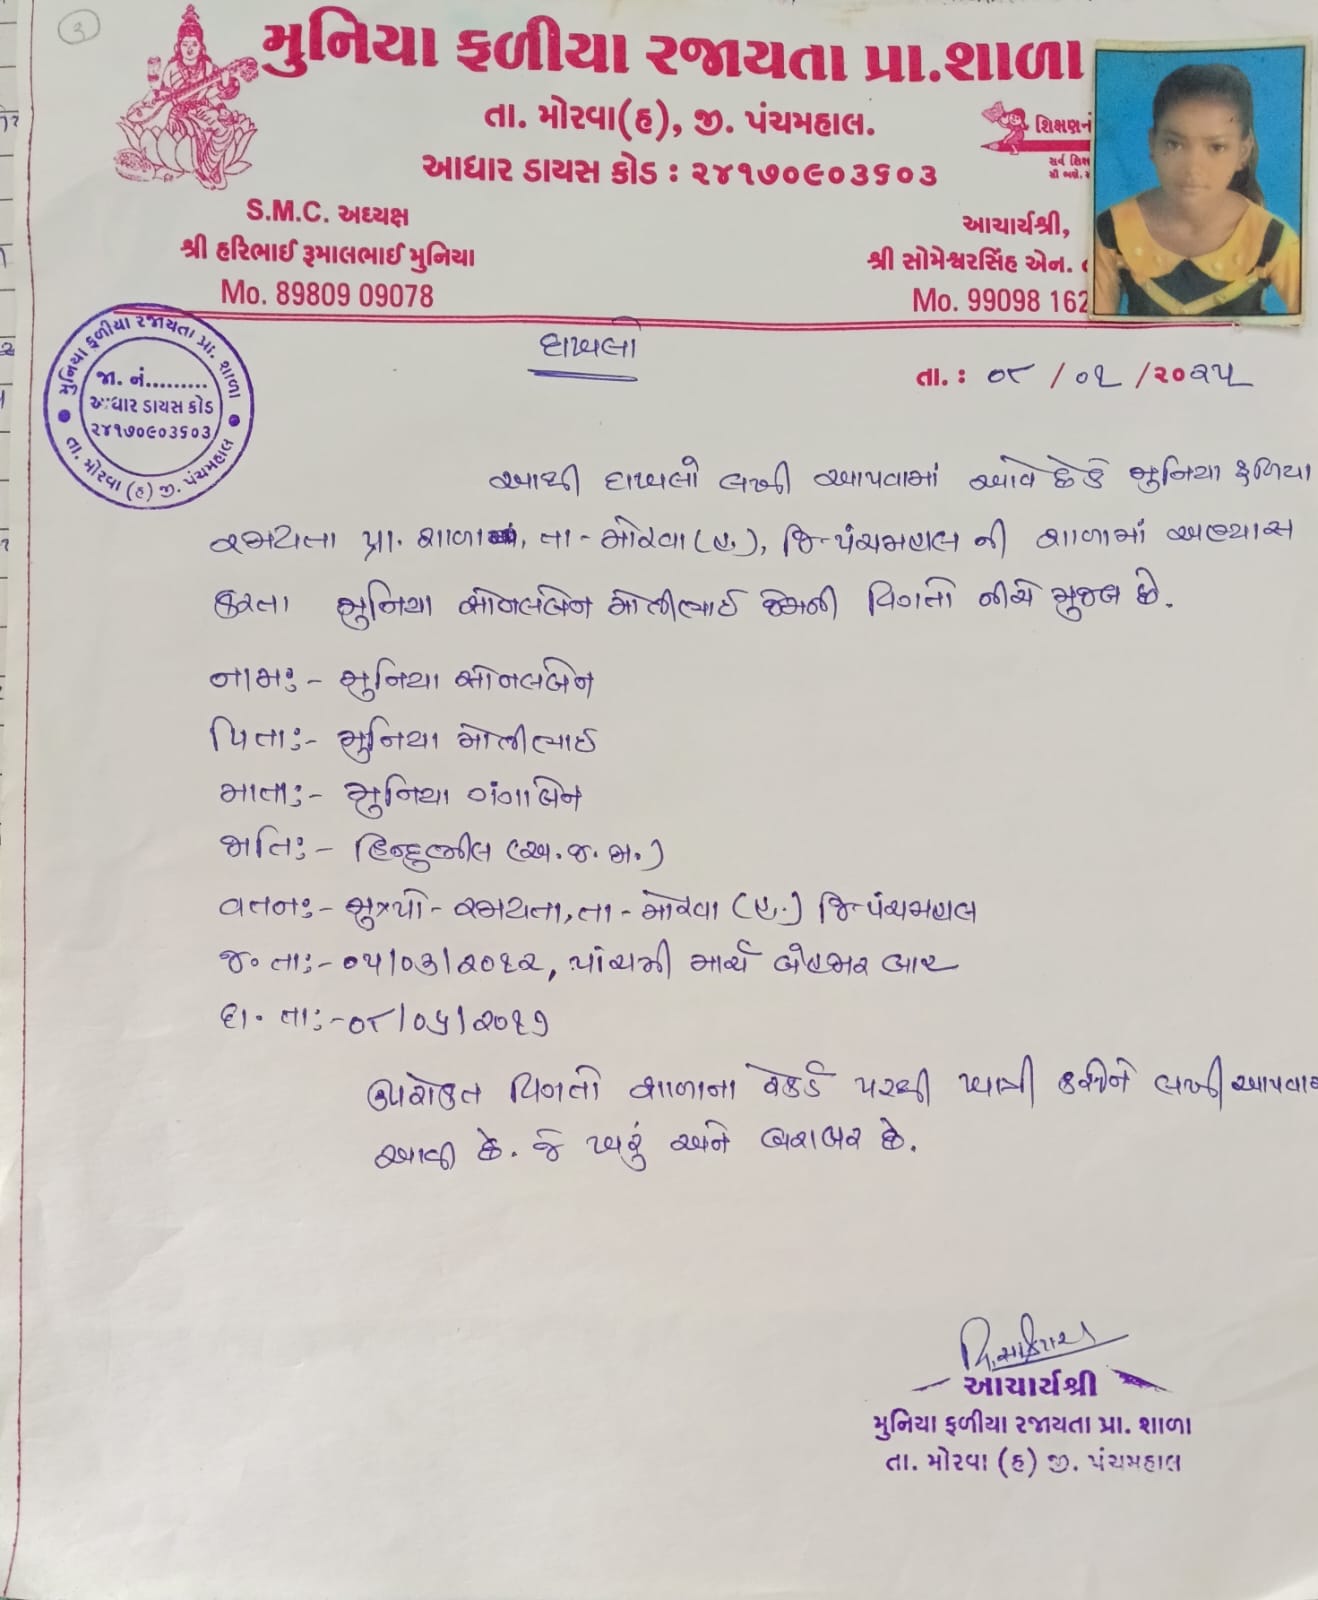 ૩
મુનિયા ફળીયા રજાયતા પ્રા.શાળા
તા. મોરવા(હ), જી. પંચમહાલ.
આધાર ડાયસ કોડ : ૨૪૧૭૦૯૦૩૬૦૩
શિક્ષણનં
સર્વ શિ
S.M.C. અધ્યક્ષ
શ્રી હરિભાઈ રૂમાલભાઈ મુનિયા
Mo. 89809 09078
આચાર્યશ્રી,
શ્રી સોમેશ્વરસિંહ એન.
Mo. 99098 162
મુનિયા ફળીયા રજાયતા પ્રા. શાળા
જા. નં.........
આધાર ડાયસ કોડ
૨૪૧૭૦૯૦૩૬૦૩
તા. મોરવા (હ) જી. પંચમહાલ
દાખલો
તા. : ૦૮ / ૦૧ / ૨૦૨૫
આથી દાખલો લખી આપવામાં આવે છેકે મુનિયા ફળિયા
રજાયતા પ્રા. શાળા, તા - મોરવા (હ.), જિ-પંચમહાલ ની શાળામાં અભ્યાસ
કરતા મુનિયા સોનલબેન મોતીભાઈ જેમની વિગતો નીચે મુજબ છે.
નામઃ - મુનિયા સોનલબેન
પિતાઃ- મુનિયા મોતીભાઈ
માતાઃ- મુનિયા ગંગાબેન
જાતિઃ - હિન્દુભીલ (અ.જ.જા.)
વતનઃ - મુ.પો - રજાયતા, તા - મોરવા (હ.) જિ-પંચમહાલ
જ. તાઃ- ૦૫/૦૩/૨૦૧૨, પાંચમી માર્ચ બેહજાર બાર
દા. તાઃ-૦૮/૦૫/૨૦૧૭
ઉપરોક્ત વિગતો શાળાના રેકર્ડ પરથી ખાત્રી કરીને લખી આપવામાં
આવી છે. જે ખરું અને બરાબર છે.
આચાર્યશ્રી
મુનિયા ફળીયા રજાયતા પ્રા. શાળા
તા. મોરવા (હ) જી. પંચમહાલ